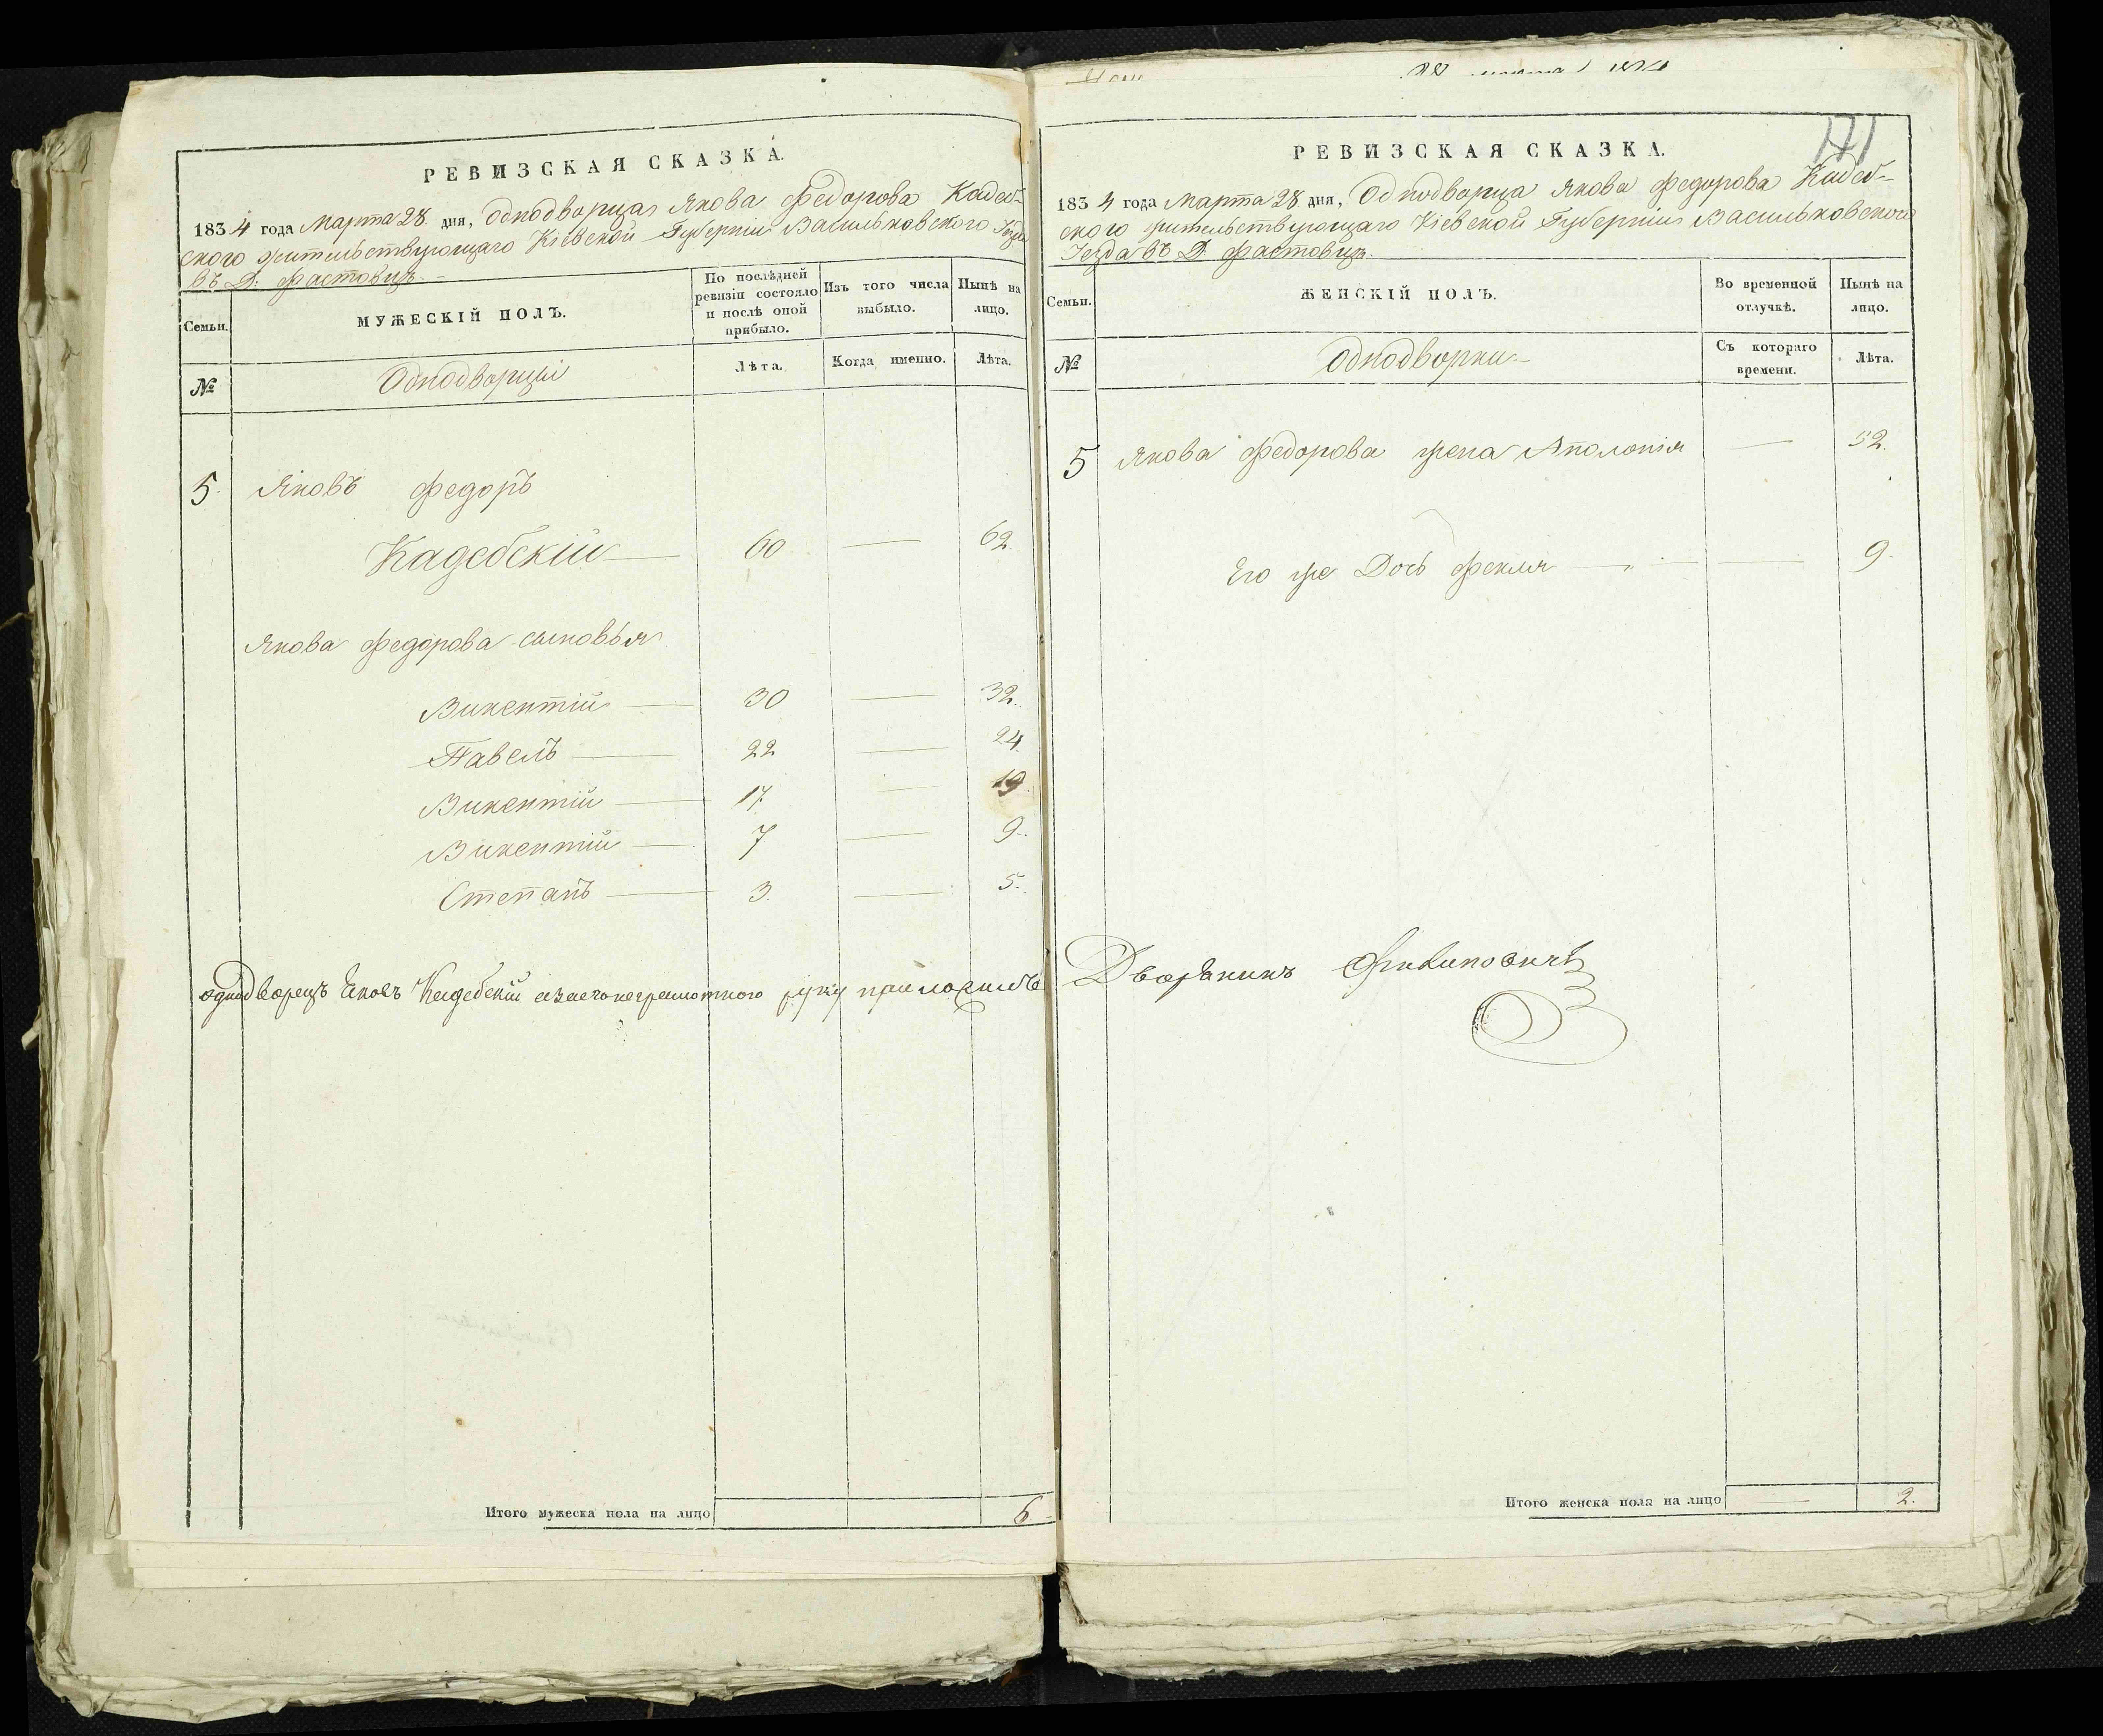 РЕВИЗСКАЯ СКАЗКА.
1834 года Марта 28 дня, Однодворца Якова Федорова Кадеб-
ского жительствующаго Кіевской Губерніи Васильковского Уезда
въ Д. Фастовцѣ.
Семьи.
МУЖЕСКІЙ ПОЛЪ.
По послѣдней ревизіи состояло и послѣ оной прибыло.
Изъ того числа выбыло.
Нынѣ на лицо.
№
Однодворцы
Лѣта.
Когда именно.
Лѣта.
5. Яковъ Федоръ
Кадебскій — 60 — 62.
Якова Федорова сыновья
Викентій — 30 — 32.
Павелъ — 22 — 24.
Викентій — 17. — 19.
Викентій — 7 — 9.
Степанъ — 3. — 5.
однодворецъ Яковъ Кадебскій а за его неграмотного руку приложилъ
Итого мужеска пола на лицо 6
171
РЕВИЗСКАЯ СКАЗКА.
1834 года Марта 28 дня, Однодворца Якова Федорова Кадеб-
ского жительствующаго Кіевской Губерніи Васильковского
Уезда въ Д. Фастовцѣ.
Семьи.
ЖЕНСКІЙ ПОЛЪ.
Во временной отлучкѣ.
Нынѣ на лицо.
№
Однодворки
Съ котораго времени.
Лѣта.
5 Якова Федорова жена Аполонія — 52.
Его же Дочь Фекля — — 9.
Дворянинъ Филиповичъ
Итого женска пола на лицо — 2.